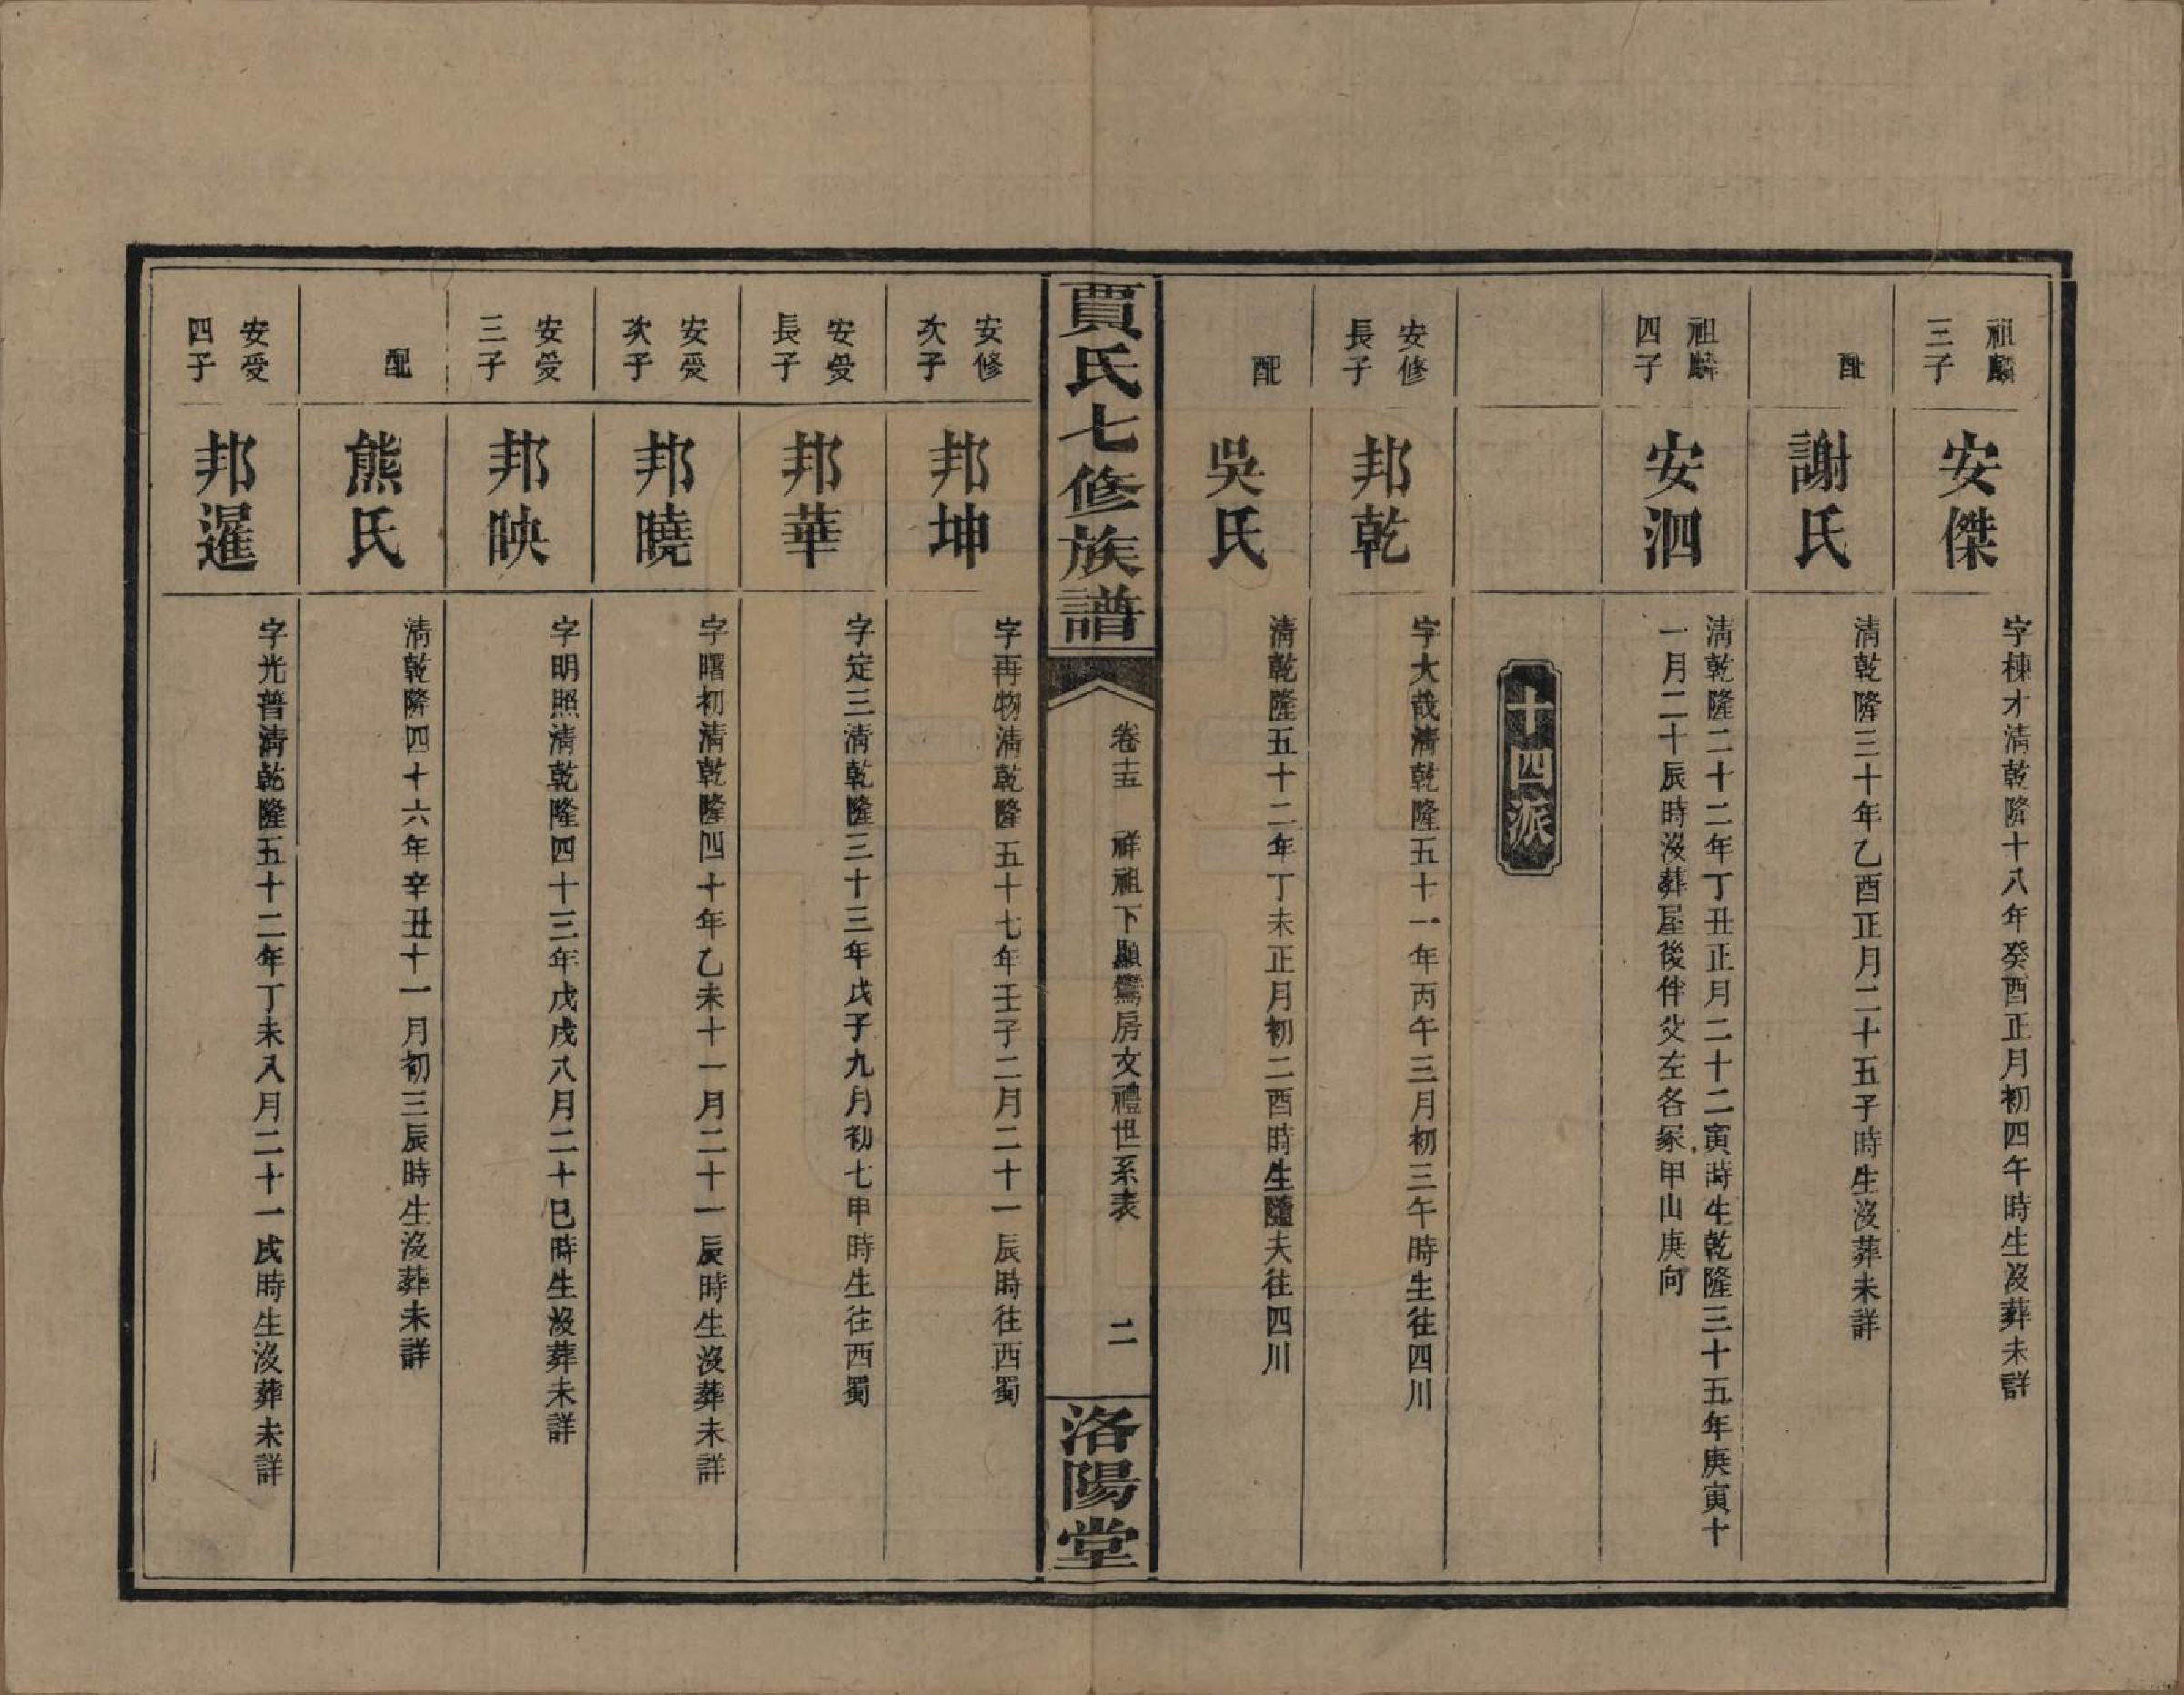 祖麟
三子
安傑
字棟才清乾隆十八年癸酉正月初四午時生沒葬未詳
配
謝氏
清乾隆三十年乙酉正月二十五子時生沒葬未詳
祖麟
四子
安泗
清乾隆二十二年丁丑正月二十二寅時生乾隆三十五年庚寅十
一月二十辰時沒葬屋後伴父左各冢甲山庚向
十四派
安修
長子
邦乾
字大哉清乾隆五十一年丙午三月初三午時生往四川
配
吳氏
清乾隆五十二年丁未正月初二酉時生隨夫往四川
賈氏七修族譜
卷十五 祥祖下顯鶯房文禮世系表 二
洛陽堂
安修
次子
邦坤
字再物清乾隆五十七年壬子二月二十一辰時往西蜀
安受
長子
邦華
字定三清乾隆三十三年戊子九月初七申時生往西蜀
安受
次子
邦曉
字曙初清乾隆四十年乙未十一月二十一辰時生沒葬未詳
安受
三子
邦映
字明照清乾隆四十三年戊戌八月二十巳時生沒葬未詳
配
熊氏
清乾隆四十六年辛丑十一月初三辰時生沒葬未詳
安受
四子
邦暹
字光普清乾隆五十二年丁未八月二十一戌時生沒葬未詳